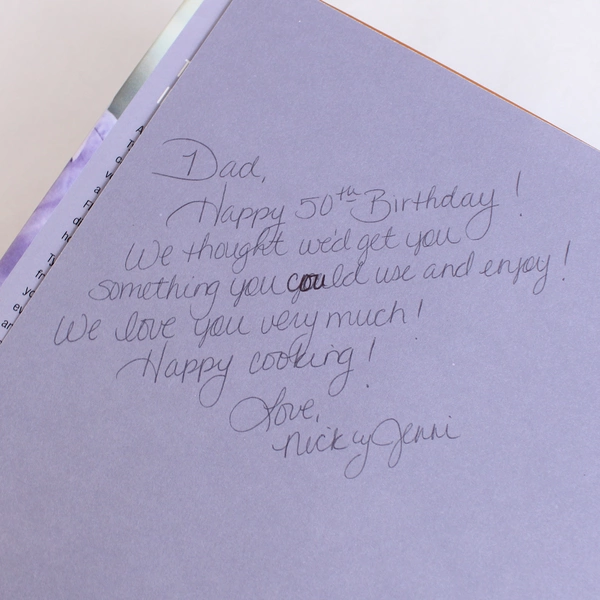 Dad,
Happy 50th Birthday!
We thought we'd get you
something you could use and enjoy!
We love you very much!
Happy cooking!
Love,
Nick & Jenni